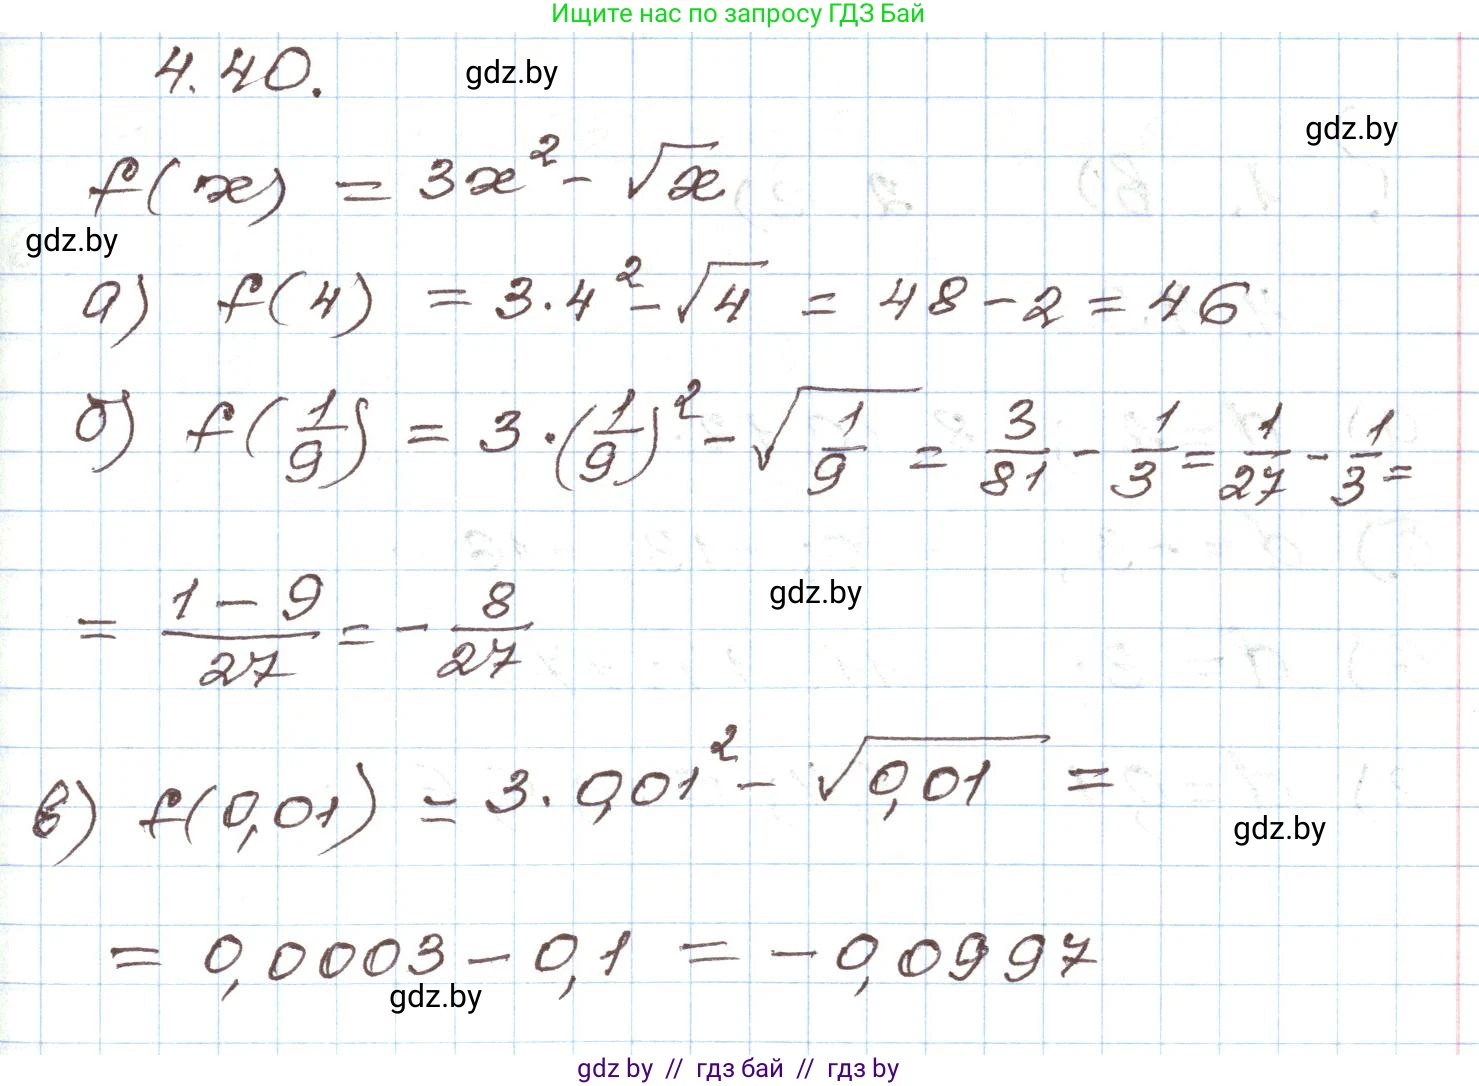 Ищите нас по запросу ГДЗ Бай
4.40.
gdz.by
gdz.by
f(x) = 3x² - √x
gdz.by
а) f(4) = 3·4² - √4 = 48 - 2 = 46
б) f(1/9) = 3·(1/9)² - √(1/9) = 3/81 - 1/3 = 1/27 - 1/3 =
= (1 - 9)/27 = - 8/27
gdz.by
в) f(0,01) = 3·0,01² - √0,01 =
gdz.by
= 0,0003 - 0,1 = -0,0997
gdz.by
gdz by // гдз бай // гдз by